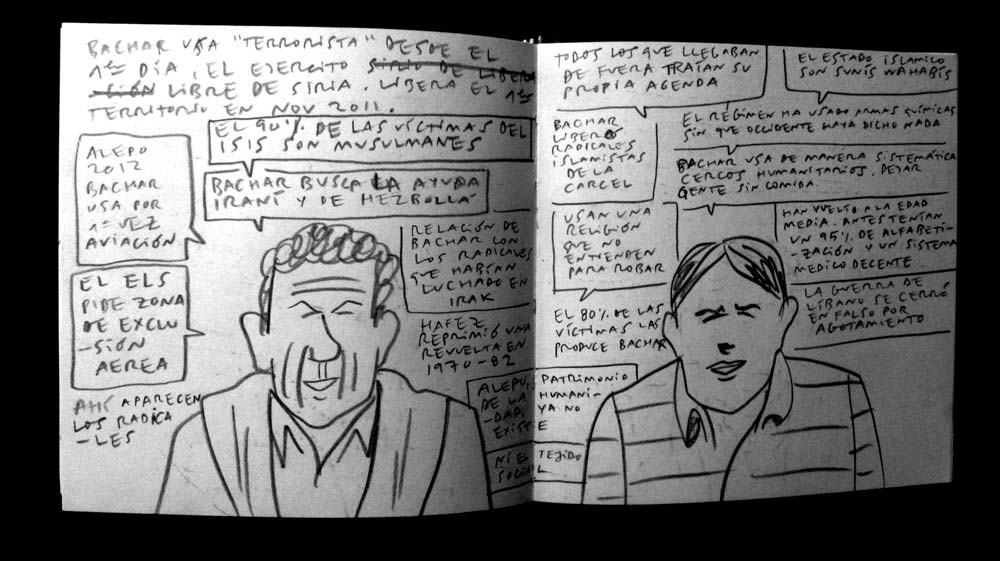 BACHAR USA "TERRORISTA" DESDE EL
1er DÍA, EL EJERCITO SIRIO DE LIBERA
-CIÓN LIBRE DE SIRIA. LIBERA EL 1er
TERRITORIO EN NOV 2011.
EL 90% DE LAS VÍCTIMAS DEL
ISIS SON MUSULMANES
ALEPO
2012
BACHAR
USA POR
1ª VEZ
AVIACIÓN
BACHAR BUSCA LA AYUDA
IRANÍ Y DE HEZBOLLA
EL ELS
PIDE ZONA
DE EXCLU
-SIÓN
AEREA
AHÍ APARECEN
LOS RADICA
-LES
RELACIÓN DE
BACHAR CON
LOS RADICALES
QUE HABÍAN
LUCHADO EN
IRAK
HAFEZ
REPRIMIÓ UNA
REVUELTA EN
1970-82
ALEPO, PATRIMONIO
DE LA HUMANI-
-DAD, YA NO
EXISTE
NI EL TEJIDO
SOCIAL
TODOS LOS QUE LLEGABAN
DE FUERA TRAÍAN SU
PROPIA AGENDA
EL ESTADO ISLAMICO
SON SUNIS WAHABIS
BACHAR
LIBERÓ
RADICALES
ISLAMISTAS
DE LA
CARCEL
EL RÉGIMEN HA USADO ARMAS QUÍMICAS
SIN QUE OCCIDENTE HAYA DICHO NADA
BACHAR USA DE MANERA SISTEMÁTICA
CERCOS HUMANITARIOS, DEJAR
GENTE SIN COMIDA
USAN UNA
RELIGIÓN
QUE NO
ENTIENDEN
PARA ROBAR
HAN VUELTO A LA EDAD
MEDIA. ANTES TENÍAN
UN 95% DE ALFABETI-
-ZACIÓN Y UN SISTEMA
MEDICO DECENTE
EL 80% DE LAS
VÍCTIMAS LAS
PRODUCE BACHAR
LA GUERRA DE
LÍBANO SE CERRÓ
EN FALSO POR
AGOTAMIENTO